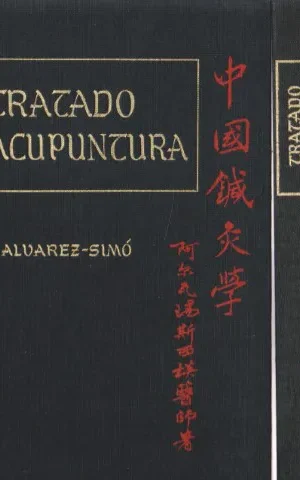 TRATADO
ACUPUNTURA
ALVAREZ-SIMÓ
中國鍼灸學
阿尔瓦斯西醫師著
TRATADO